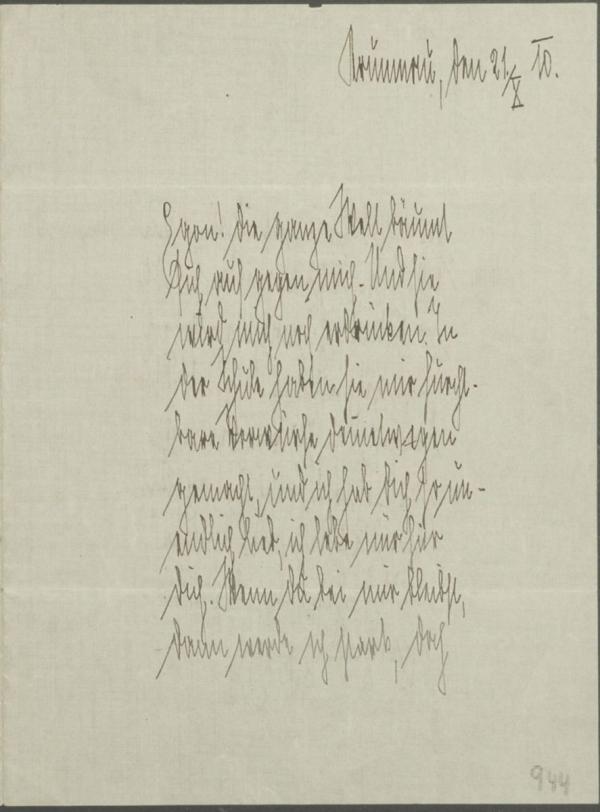 Krummau, den 21/X 10.
Egon! Die ganze Welt bäumt
sich auf gegen mich. Und sie
wird mich noch erdrücken. In
der Schule haben sie mir furcht-
bare Vorwürfe deinetwegen
gemacht, und ich hab dich so un-
endlich lieb, ich lebe nur für
dich. Wenn du bei mir bleibst,
dann werde ich stark, doch
944